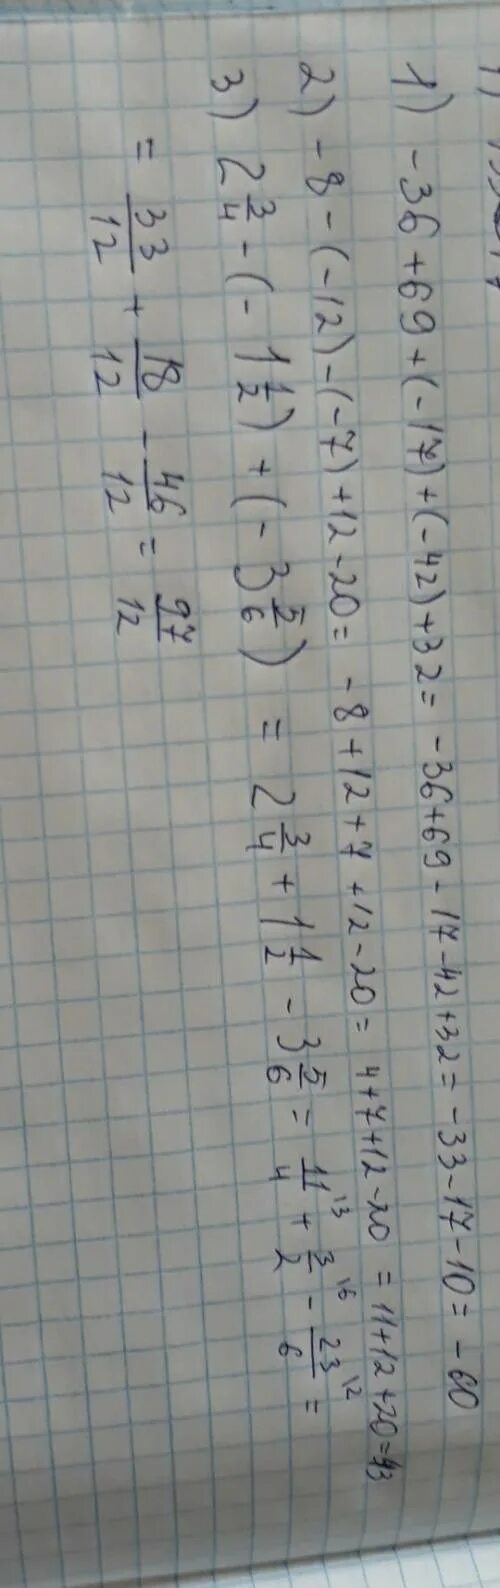 1) -36+69+(-17)+(-42)+32= -36+69-17-42+32= -33-17-10= -60
2) -8-(-12)-(-7)+12-20= -8+12+7+12-20= 4+7+12-20 = 11+12+20=43
3) 2 3/4 - (- 1 1/2) + (- 3 5/6) = 2 3/4 + 1 1/2 - 3 5/6 = 11/4 \3 + 3/2 \6 - 23/6 \2 =
= 33/12 + 18/12 - 46/12 = 97/12